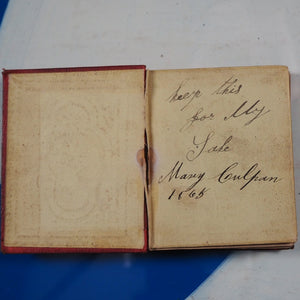 keep this
for My
Sake
Mary Culpan
1865